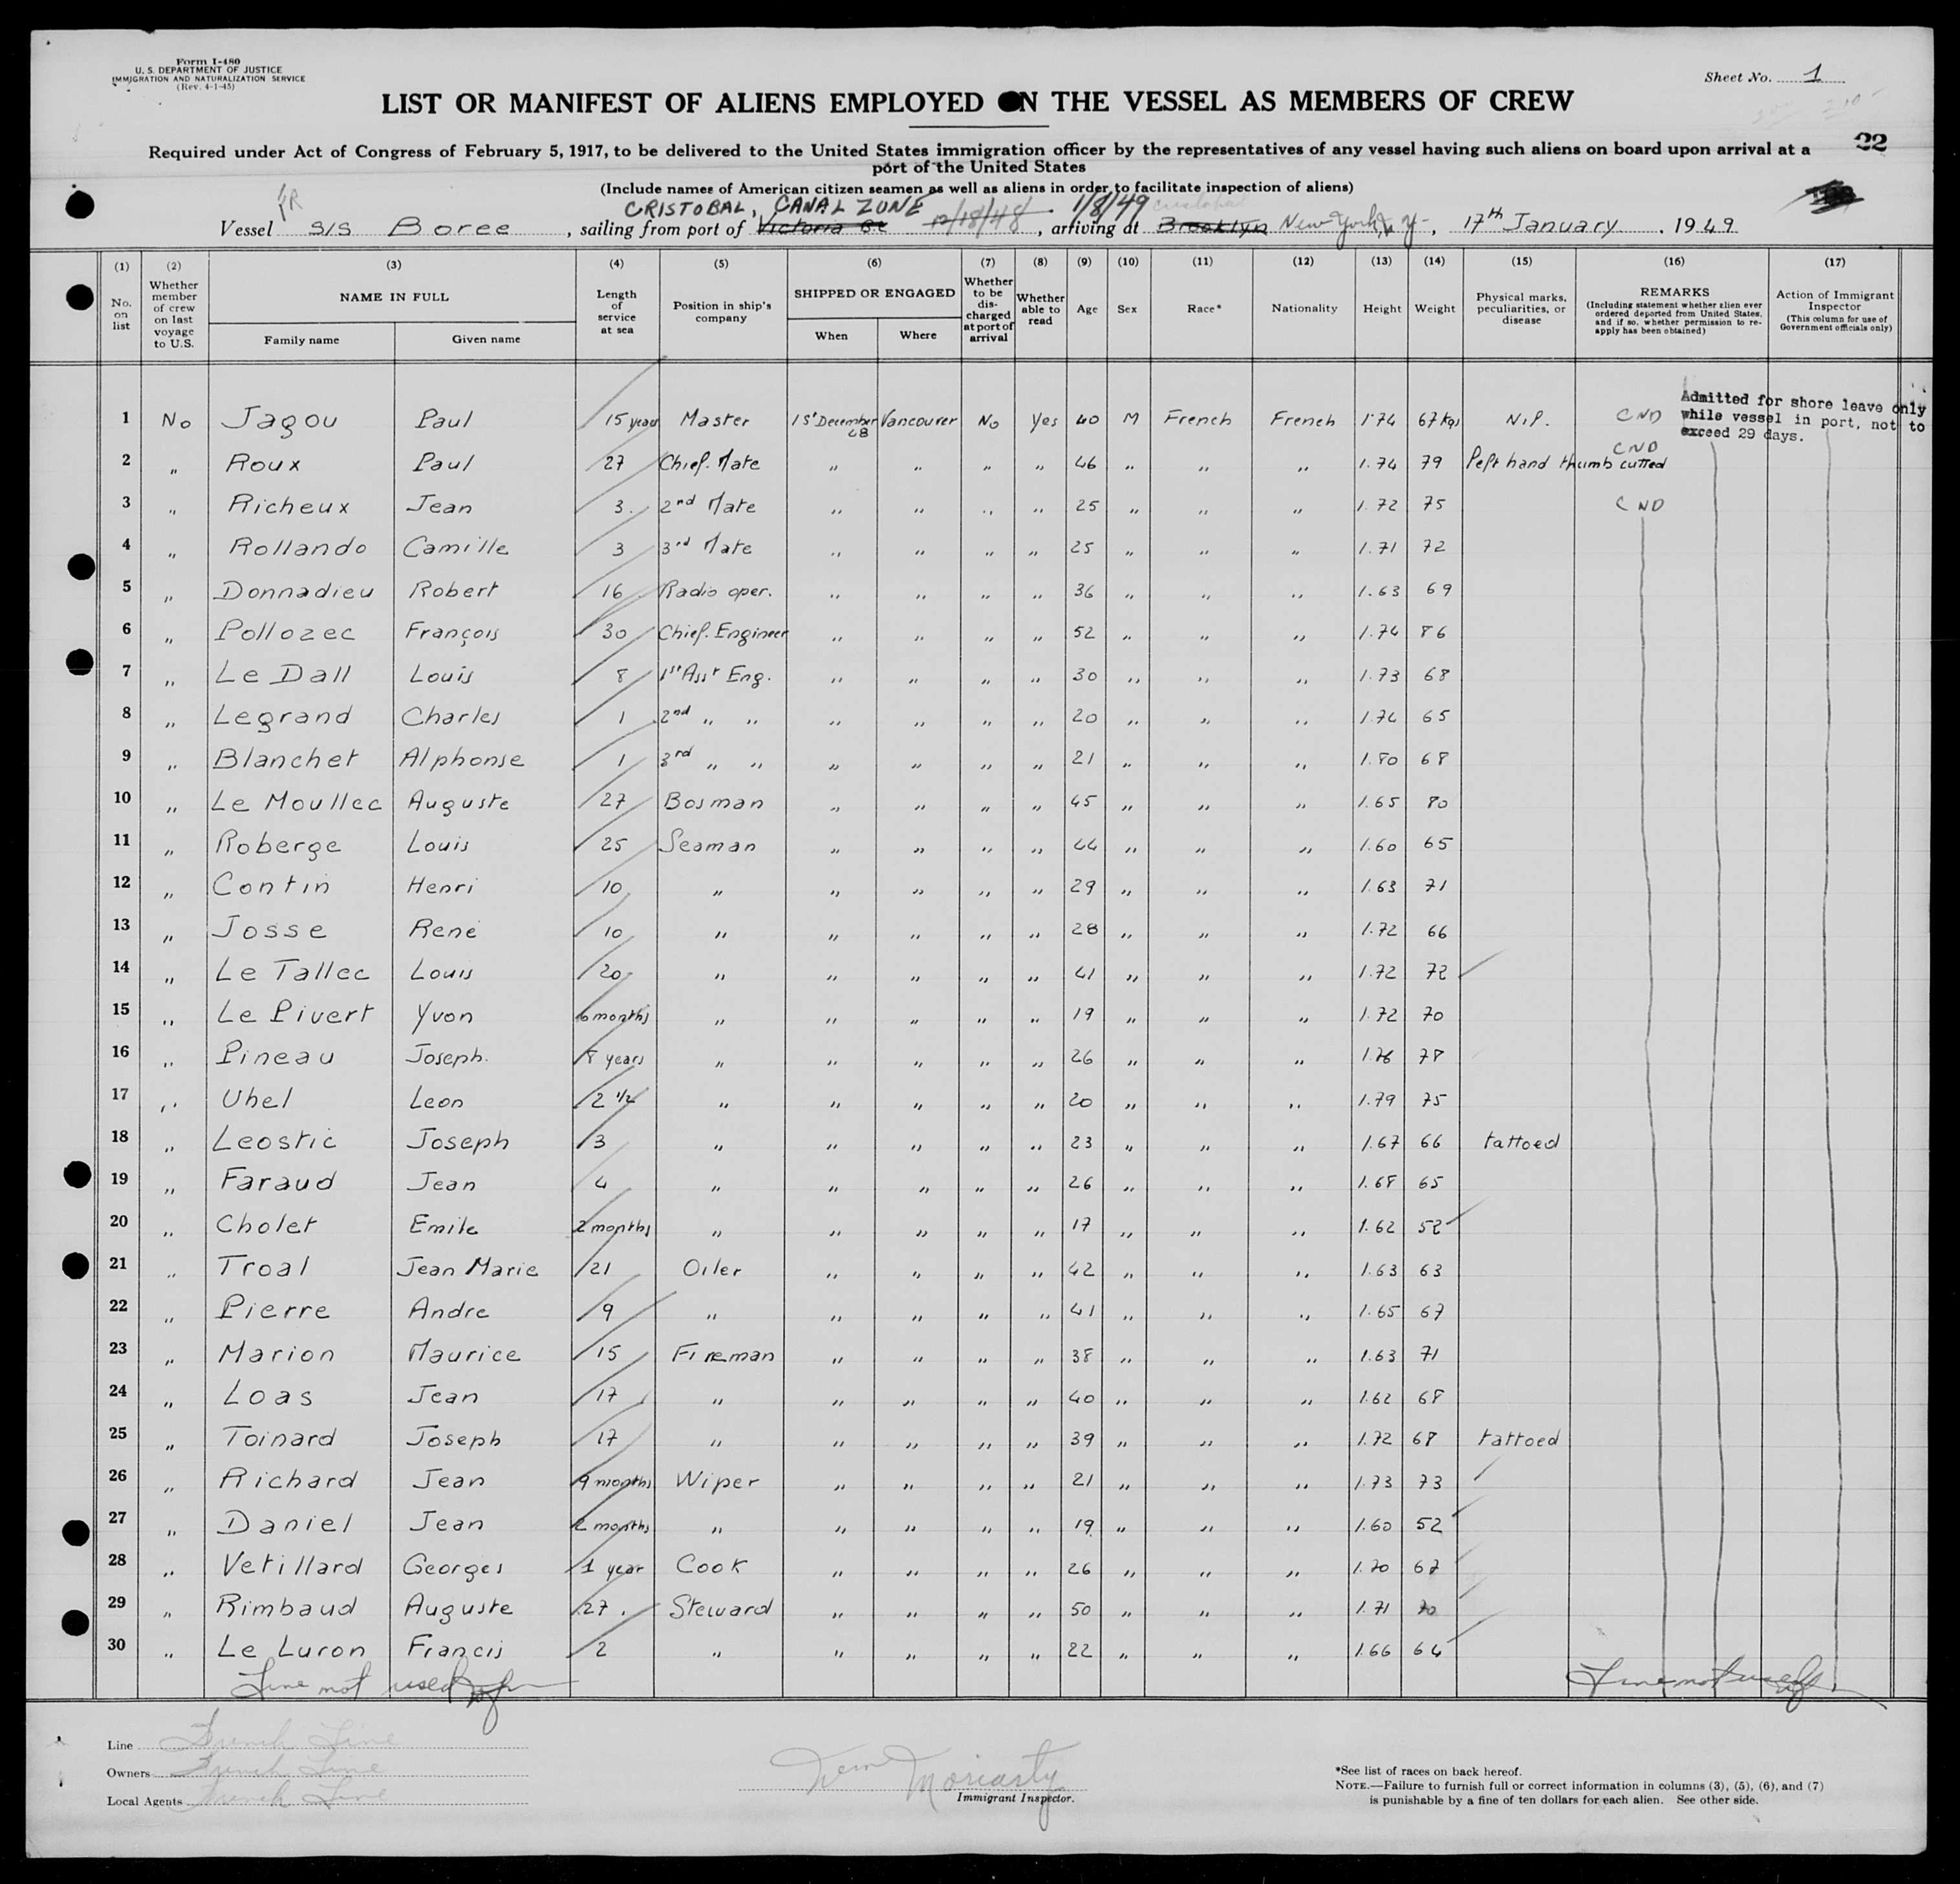 Form I-480
U. S. DEPARTMENT OF JUSTICE
IMMIGRATION AND NATURALIZATION SERVICE
(Rev. 4-1-45)
Sheet No. 1
LIST OR MANIFEST OF ALIENS EMPLOYED ON THE VESSEL AS MEMBERS OF CREW
22
Required under Act of Congress of February 5, 1917, to be delivered to the United States immigration officer by the representatives of any vessel having such aliens on board upon arrival at a
port of the United States
(Include names of American citizen seamen as well as aliens in order to facilitate inspection of aliens)
FR CRISTOBAL, CANAL ZONE 1/8/49 Cristobal
Vessel S/S Boree , sailing from port of Victoria Bc 12/18/48 , arriving at Brooklyn New York, N.Y. , 17th January , 1949
(1) (2) (3) (4) (5) (6) (7) (8) (9) (10) (11) (12) (13) (14) (15) (16) (17)
No. on list
Whether member of crew on last voyage to U.S.
NAME IN FULL
Family name Given name
Length of service at sea
Position in ship's company
SHIPPED OR ENGAGED
When Where
Whether to be discharged at port of arrival
Whether able to read
Age Sex Race* Nationality Height Weight
Physical marks, peculiarities, or disease
REMARKS
(Including statement whether alien ever ordered deported from United States, and if so, whether permission to re-apply has been obtained)
Action of Immigrant Inspector
(This column for use of Government officials only)
Admitted for shore leave only
while vessel in port, not to
exceed 29 days.
1 No Jagou Paul 15 years Master 1st December 48 Vancouver No Yes 40 M French French 1.74 67 Kgs N.P. CND
2 " Roux Paul 27 Chief. Mate " " " " 46 " " " 1.74 79 Left hand thumb cutted CND
3 " Richeux Jean 3. 2nd Mate " " " " 25 " " " 1.72 75 CND
4 " Rollando Camille 3 3rd Mate " " " " 25 " " " 1.71 72
5 " Donnadieu Robert 16 Radio oper. " " " " 36 " " " 1.63 69
6 " Pollozec François 30 Chief. Engineer " " " " 52 " " " 1.74 86
7 " Le Dall Louis 8 1st Asst Eng. " " " " 30 " " " 1.73 68
8 " Legrand Charles 1 2nd " " " " " " 20 " " " 1.74 65
9 " Blanchet Alphonse 1 3rd " " " " " " 21 " " " 1.80 68
10 " Le Moullec Auguste 27 Bosman " " " " 45 " " " 1.65 80
11 " Roberge Louis 25 Seaman " " " " 44 " " " 1.60 65
12 " Contin Henri 10 " " " " " 29 " " " 1.63 71
13 " Josse Rene 10 " " " " " 28 " " " 1.72 66
14 " Le Tallec Louis 20 " " " " " 41 " " " 1.72 72
15 " Le Pivert Yvon 6 months " " " " " 19 " " " 1.72 70
16 " Pineau Joseph. 8 years " " " " " 26 " " " 1.76 78
17 " Uhel Leon 2 1/2 " " " " " 20 " " " 1.79 75
18 " Leostic Joseph 3 " " " " " 23 " " " 1.67 66 tattoed
19 " Faraud Jean 4 " " " " " 26 " " " 1.68 65
20 " Cholet Emile 2 months " " " " " 17 " " " 1.62 52
21 " Troal Jean Marie 21 Oiler " " " " 42 " " " 1.63 63
22 " Pierre Andre 9 " " " " " 41 " " " 1.65 67
23 " Marion Maurice 15 Fireman " " " " 38 " " " 1.63 71
24 " Loas Jean 17 " " " " " 40 " " " 1.62 68
25 " Toinard Joseph 17 " " " " " 39 " " " 1.72 68 tattoed
26 " Richard Jean 9 months Wiper " " " " 21 " " " 1.73 73
27 " Daniel Jean 2 months " " " " " 19 " " " 1.60 52
28 " Vetillard Georges 1 year Cook " " " " 26 " " " 1.70 67
29 " Rimbaud Auguste 27. Steward " " " " 50 " " " 1.71 70
30 " Le Luron Francis 2 " " " " " 22 " " " 1.66 64
Line not used Line not used
Line French Line
Owners French Line
Local Agents French Line
Wm Moriasty
Immigrant Inspector.
*See list of races on back hereof.
NOTE.—Failure to furnish full or correct information in columns (3), (5), (6), and (7)
is punishable by a fine of ten dollars for each alien. See other side.